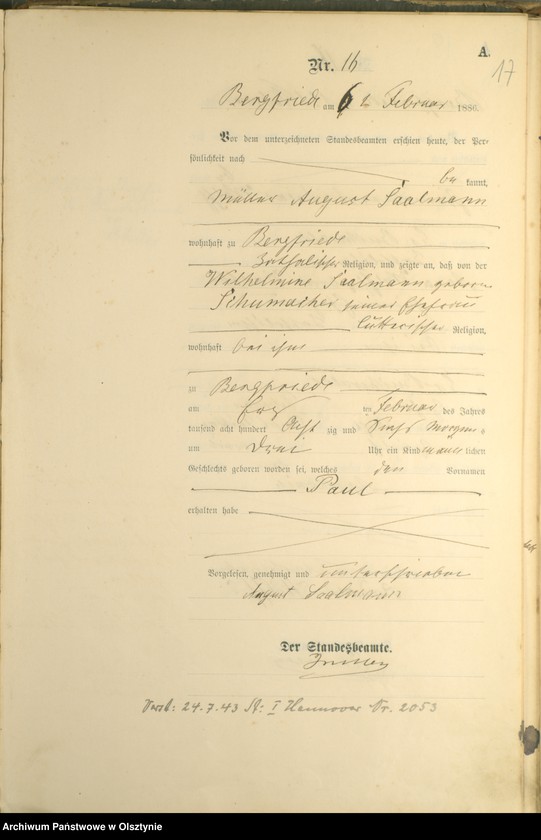 A.
17
Nr. 16
Bergfriede am 6 ten Februar 1886.
Vor dem unterzeichneten Standesbeamten erschien heute, der Per-
sönlichkeit nach
be kannt,
Müller August Saalmann
wohnhaft zu Bergfriede
katholischer Religion, und zeigte an, daß von der
Wilhelmine Saalmann geborne
Schumacher seiner Ehefrau
lutterischer Religion,
wohnhaft bei ihm
zu Bergfriede
am ten Februar des Jahres
tausend acht hundert Acht zig und Sechs Morgens
um Drei Uhr ein Kind männlichen
Geschlechts geboren worden sei, welches den Vornamen
Paul
erhalten habe
Vorgelesen, genehmigt und unterschrieben
August Saalmann
Der Standesbeamte.
24.7.43 St: I Hannover Nr. 2053
Archiwum Państwowe w Olsztynie